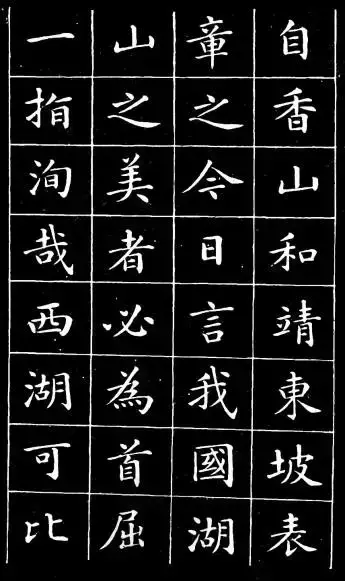 自香山和靖東坡表
章之今日言我國湖
山之美者必為首屈
一指洵哉西湖可比